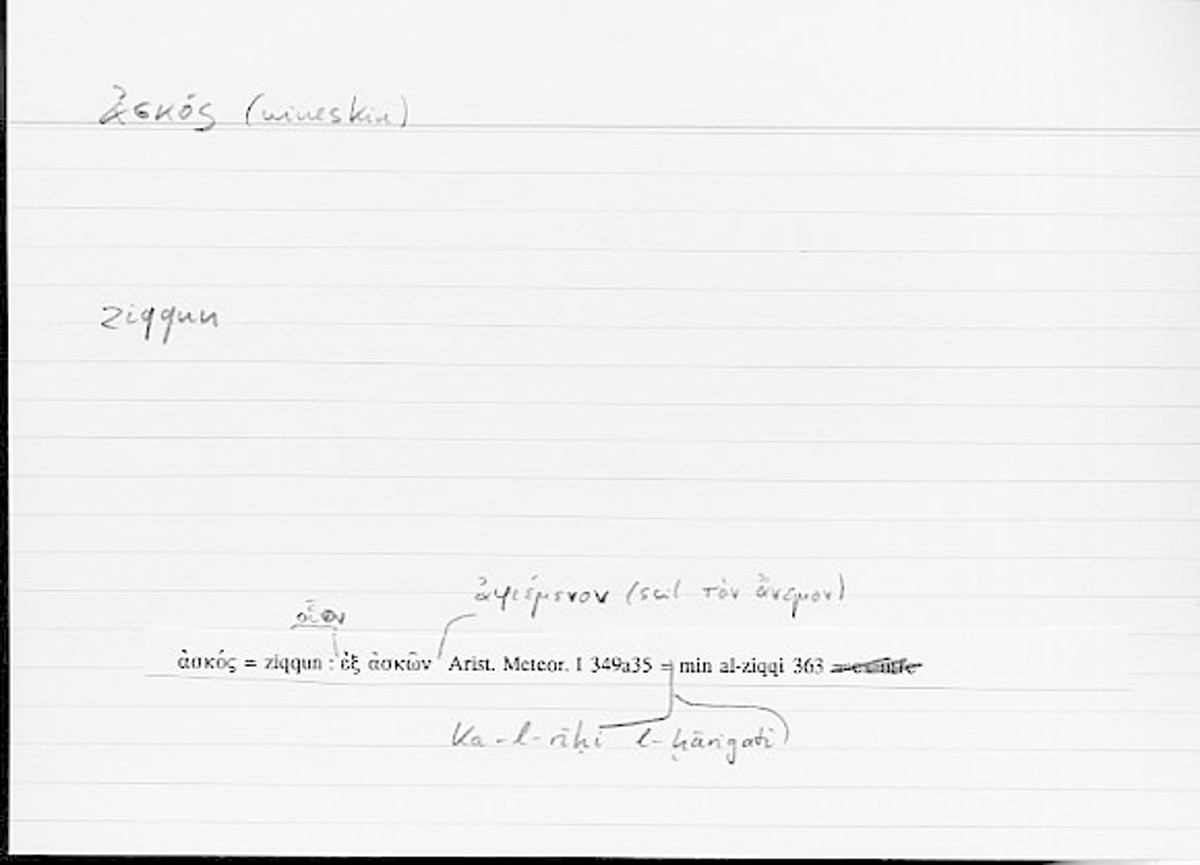 ἀσκός (wineskin)
ziqqun
ἀφιέμενον (scil. τὸν ἄνεμον)
οἷον
ἀσκός = ziqqun : ἐξ ἀσκῶν Arist. Meteor. I 349a35 = min al-ziqqi 363
Ka-l-rīḥi l-ḫāriǧati